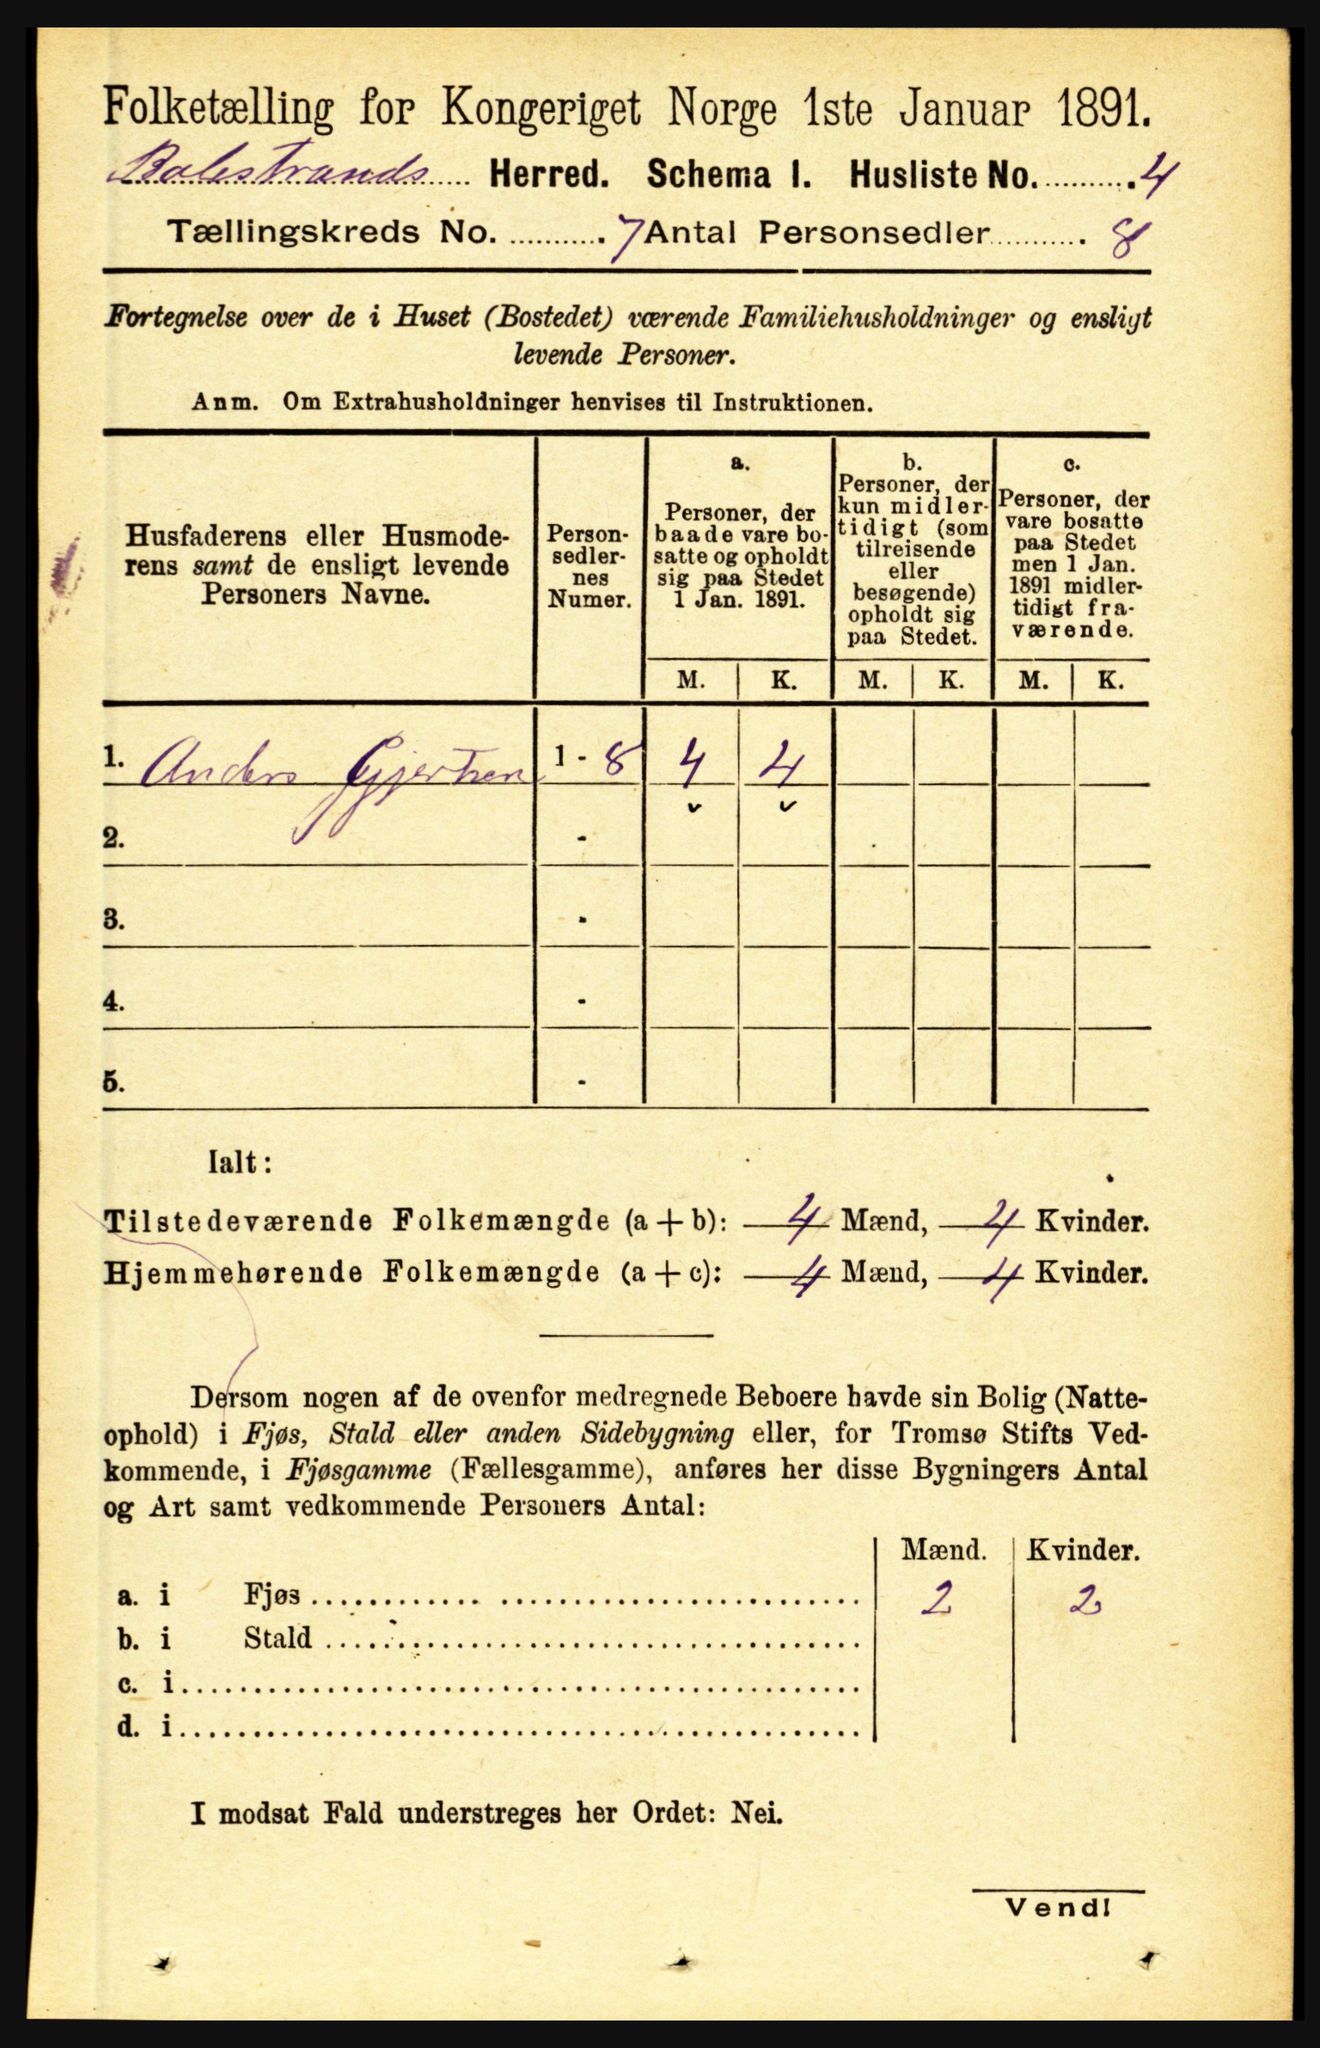 Folketælling for Kongeriget Norge 1ste Januar 1891.
Balestrands Herred. Schema I. Husliste No. 4
Tællingskreds No. 7 Antal Personsedler 8
Fortegnelse over de i Huset (Bostedet) værende Familiehusholdninger og ensligt
levende Personer.
Anm. Om Extrahusholdninger henvises til Instruktionen.
Husfaderens eller Husmode-
rens samt de ensligt levende
Personers Navne.
Person-
sedler-
nes
Numer.
a.
Personer, der
baade vare bo-
satte og opholdt
sig paa Stedet
1 Jan. 1891.
b.
Personer, der
kun midler-
tidigt (som
tilreisende
eller
besøgende)
opholdt sig
paa Stedet.
c.
Personer, der
vare bosatte
paa Stedet
men 1 Jan.
1891 midler-
tidigt fra-
værende.
M. K. M. K. M. K.
1. Anders Gjertsen 1 - 8 4 4
2. -
3. -
4. -
5. -
Ialt:
Tilstedeværende Folkemængde (a + b): 4 Mænd, 4 Kvinder.
Hjemmehørende Folkemængde (a + c): 4 Mænd, 4 Kvinder.
Dersom nogen af de ovenfor medregnede Beboere havde sin Bolig (Natte-
ophold) i Fjøs, Stald eller anden Sidebygning eller, for Tromsø Stifts Ved-
kommende, i Fjøsgamme (Fællesgamme), anføres her disse Bygningers Antal
og Art samt vedkommende Personers Antal:
Mænd. Kvinder.
a. i Fjøs 2 2
b. i Stald
c. i
d. i
I modsat Fald understreges her Ordet: Nei.
Vend!